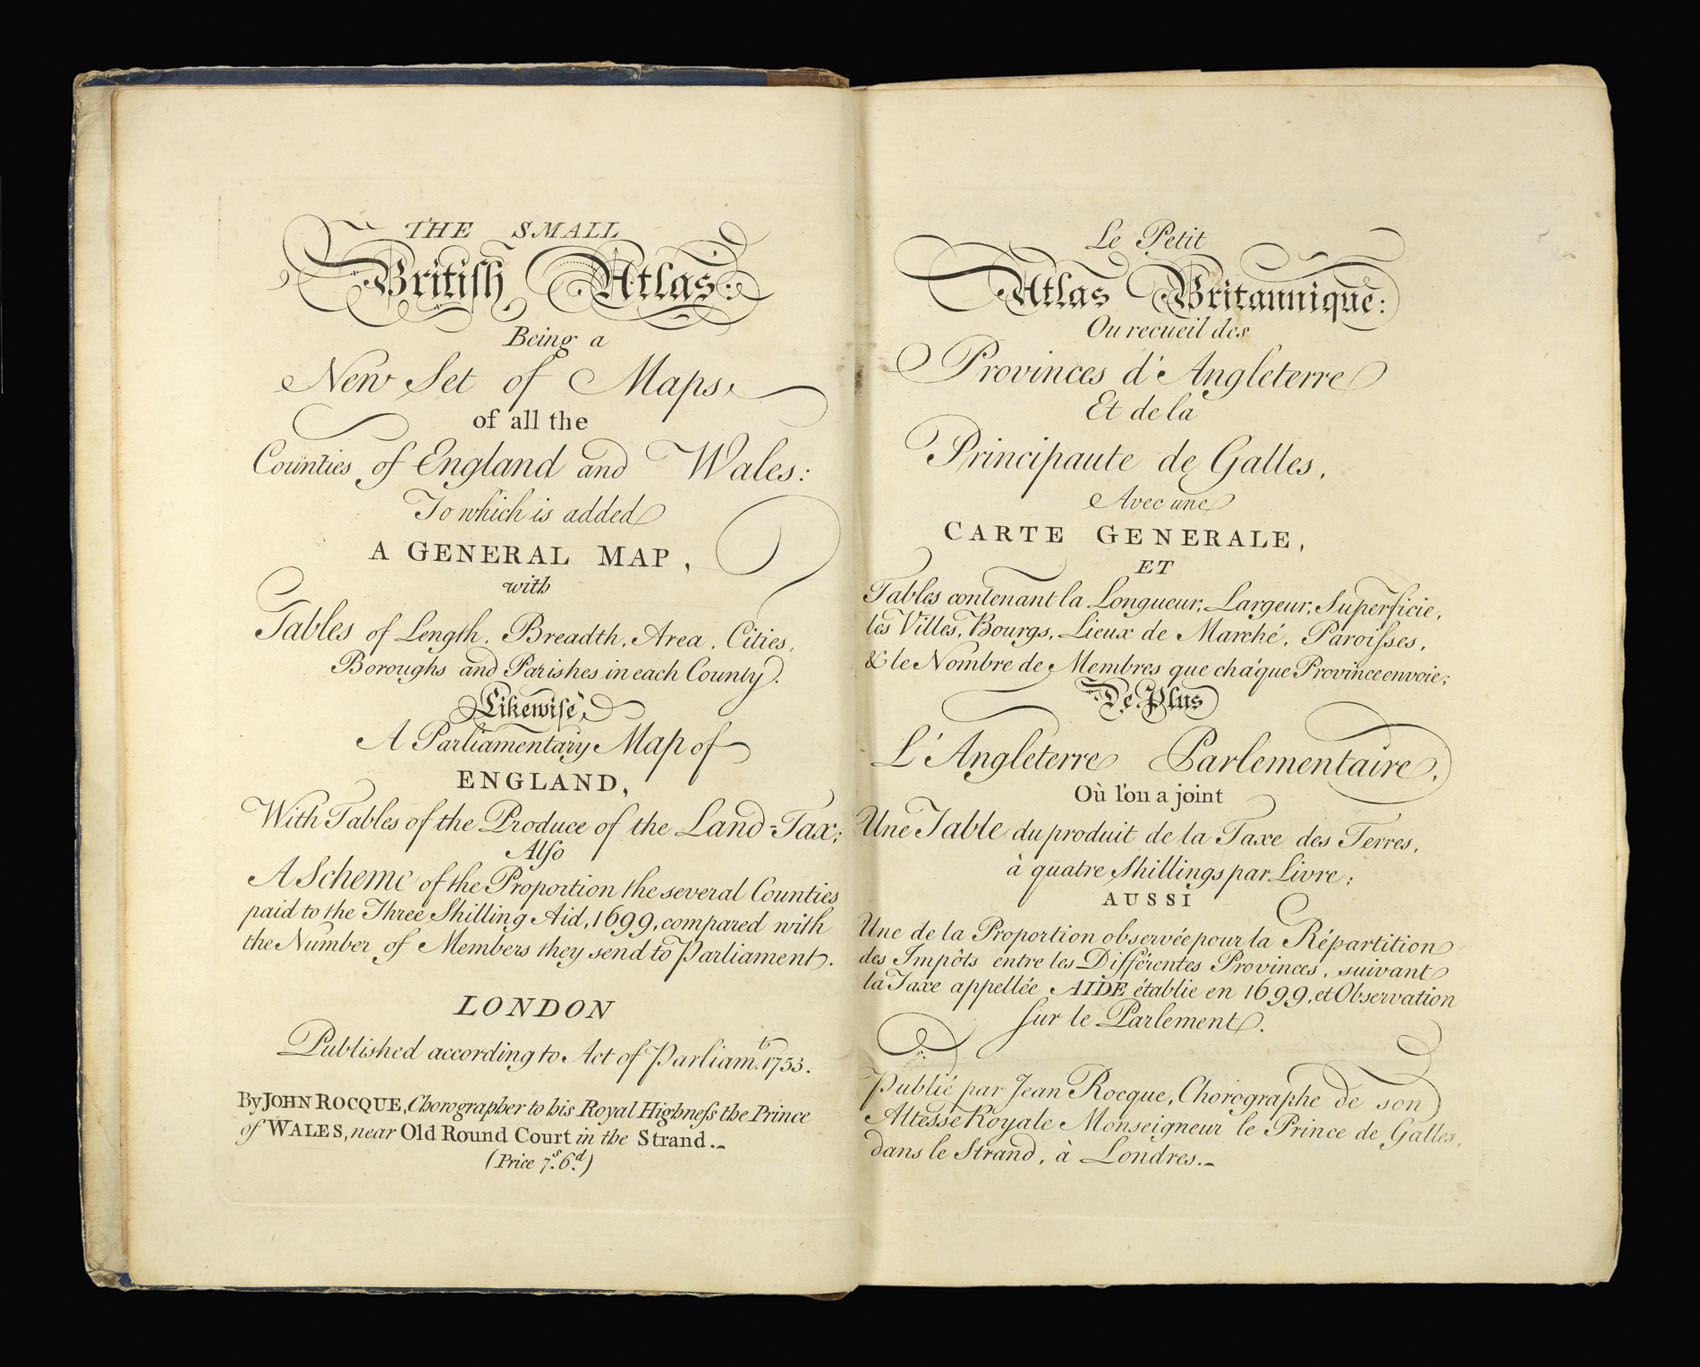 THE SMALL
British Atlas:
Being a
New Set of Maps
of all the
Counties of England and Wales:
To which is added
A GENERAL MAP,
with
Tables of Length, Breadth, Area, Cities,
Boroughs and Parishes in each County.
Likewise,
A Parliamentary Map of
ENGLAND,
With Tables of the Produce of the Land-Tax;
Also
A Scheme of the Proportion the several Counties
paid to the Three Shilling Aid, 1699, compared with
the Number of Members they send to Parliament.
LONDON
Published according to Act of Parliam.t 1753.
By JOHN ROCQUE, Chorographer to his Royal Highneſs the Prince
of WALES, near Old Round Court in the Strand.
(Price 7.s 6.d)
Le Petit
Atlas Britannique:
Ou recueil des
Provinces d'Angleterre
Et de la
Principaute de Galles,
Avec une
CARTE GENERALE,
ET
Tables contenant la Longueur, Largeur, Superficie,
les Villes, Bourgs, Lieux de Marché, Paroiſses,
& le Nombre de Membres que cháque Province envoie;
De Plus
L'Angleterre Parlementaire,
Où l'on a joint
Une Table du produit de la Taxe des Terres,
à quatre Shillings par Livre;
AUSSI
Une de la Proportion observée pour la Répartition
des Impôts entre les Différentes Provinces, suivant
la Taxe appellée AIDE établie en 1699, et Observation
sur le Parlement.
Publié par Jean Rocque, Chorographe de son
Altesse Royale Monseigneur le Prince de Galles,
dans le Strand, à Londres.